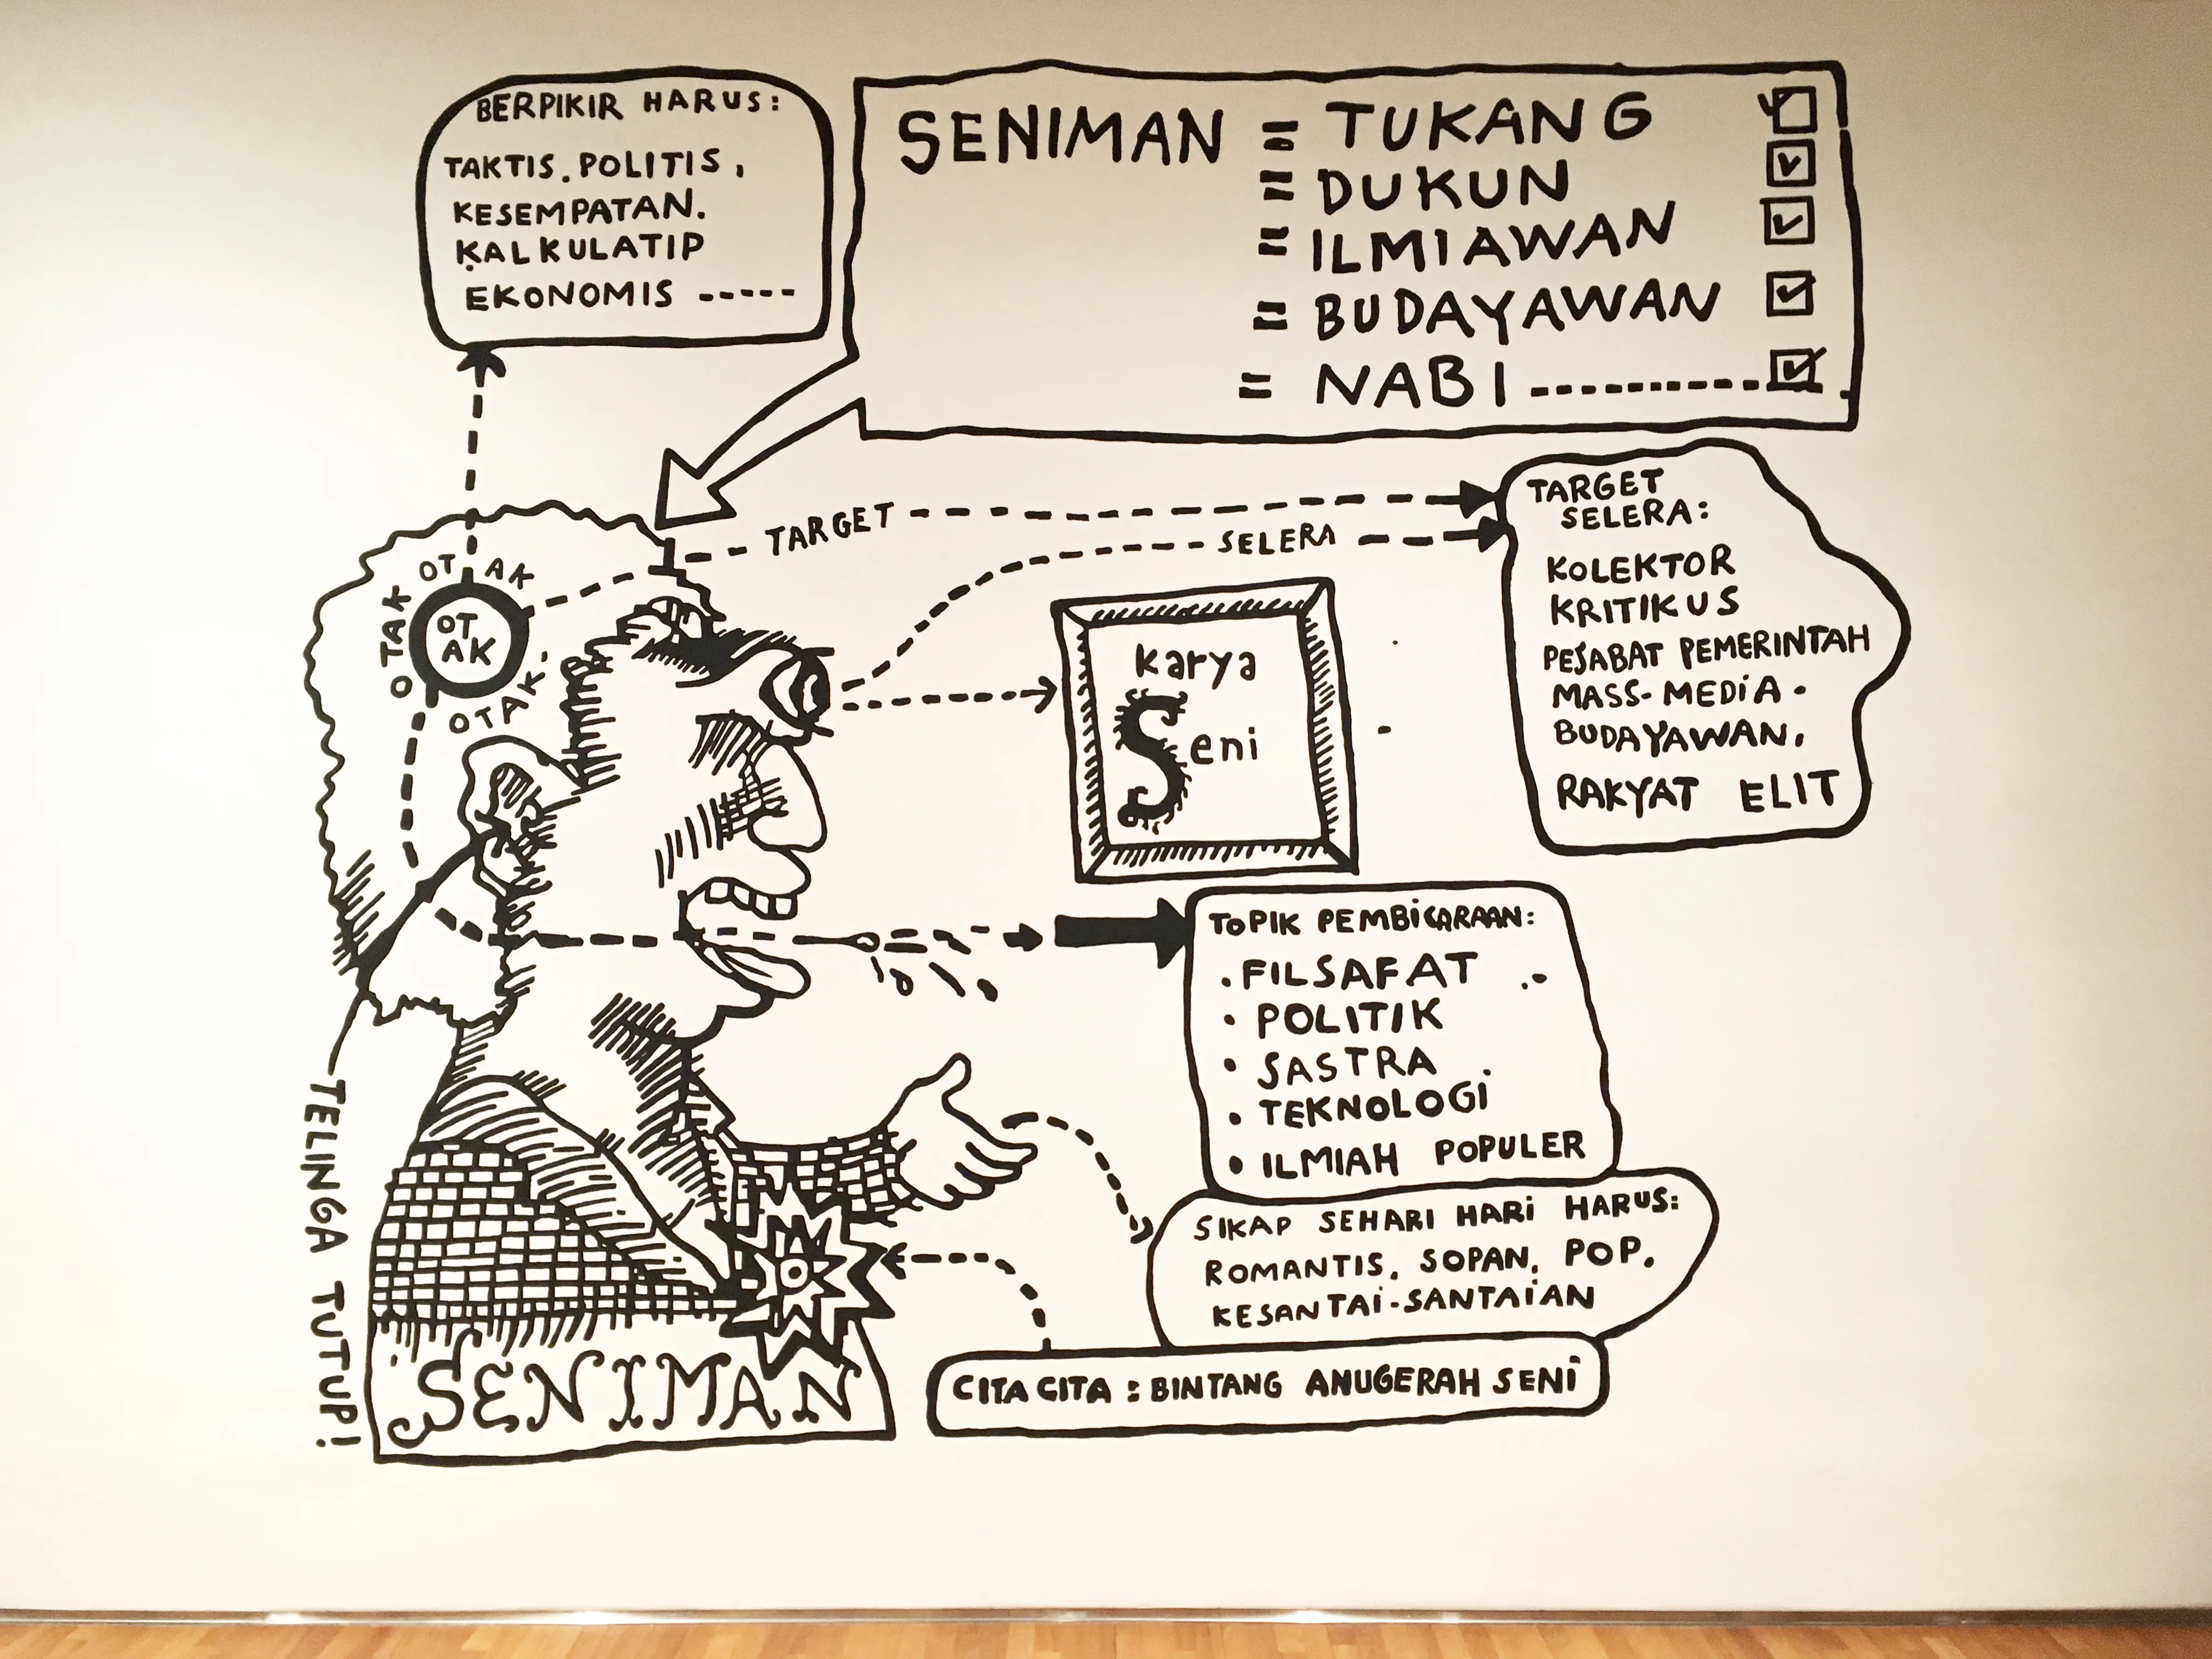 BERPIKIR HARUS:
TAKTIS. POLITIS,
KESEMPATAN.
KALKULATIP
EKONOMIS -----
SENIMAN = TUKANG
= DUKUN
= ILMIAWAN
= BUDAYAWAN
= NABI ----------
TARGET
SELERA
TARGET
SELERA:
KOLEKTOR
KRITIKUS
PEJABAT PEMERINTAH
MASS-MEDIA.
BUDAYAWAN.
RAKYAT ELIT
OTAK
OTAK
OT
AK
OTAK
karya
Seni
TOPIK PEMBICARAAN:
. FILSAFAT
• POLITIK
• SASTRA
• TEKNOLOGI
• ILMIAH POPULER
SIKAP SEHARI HARI HARUS:
ROMANTIS. SOPAN. POP.
KESANTAI-SANTAIAN
CITA CITA : BINTANG ANUGERAH SENI
TELINGA TUTUP!
SENIMAN